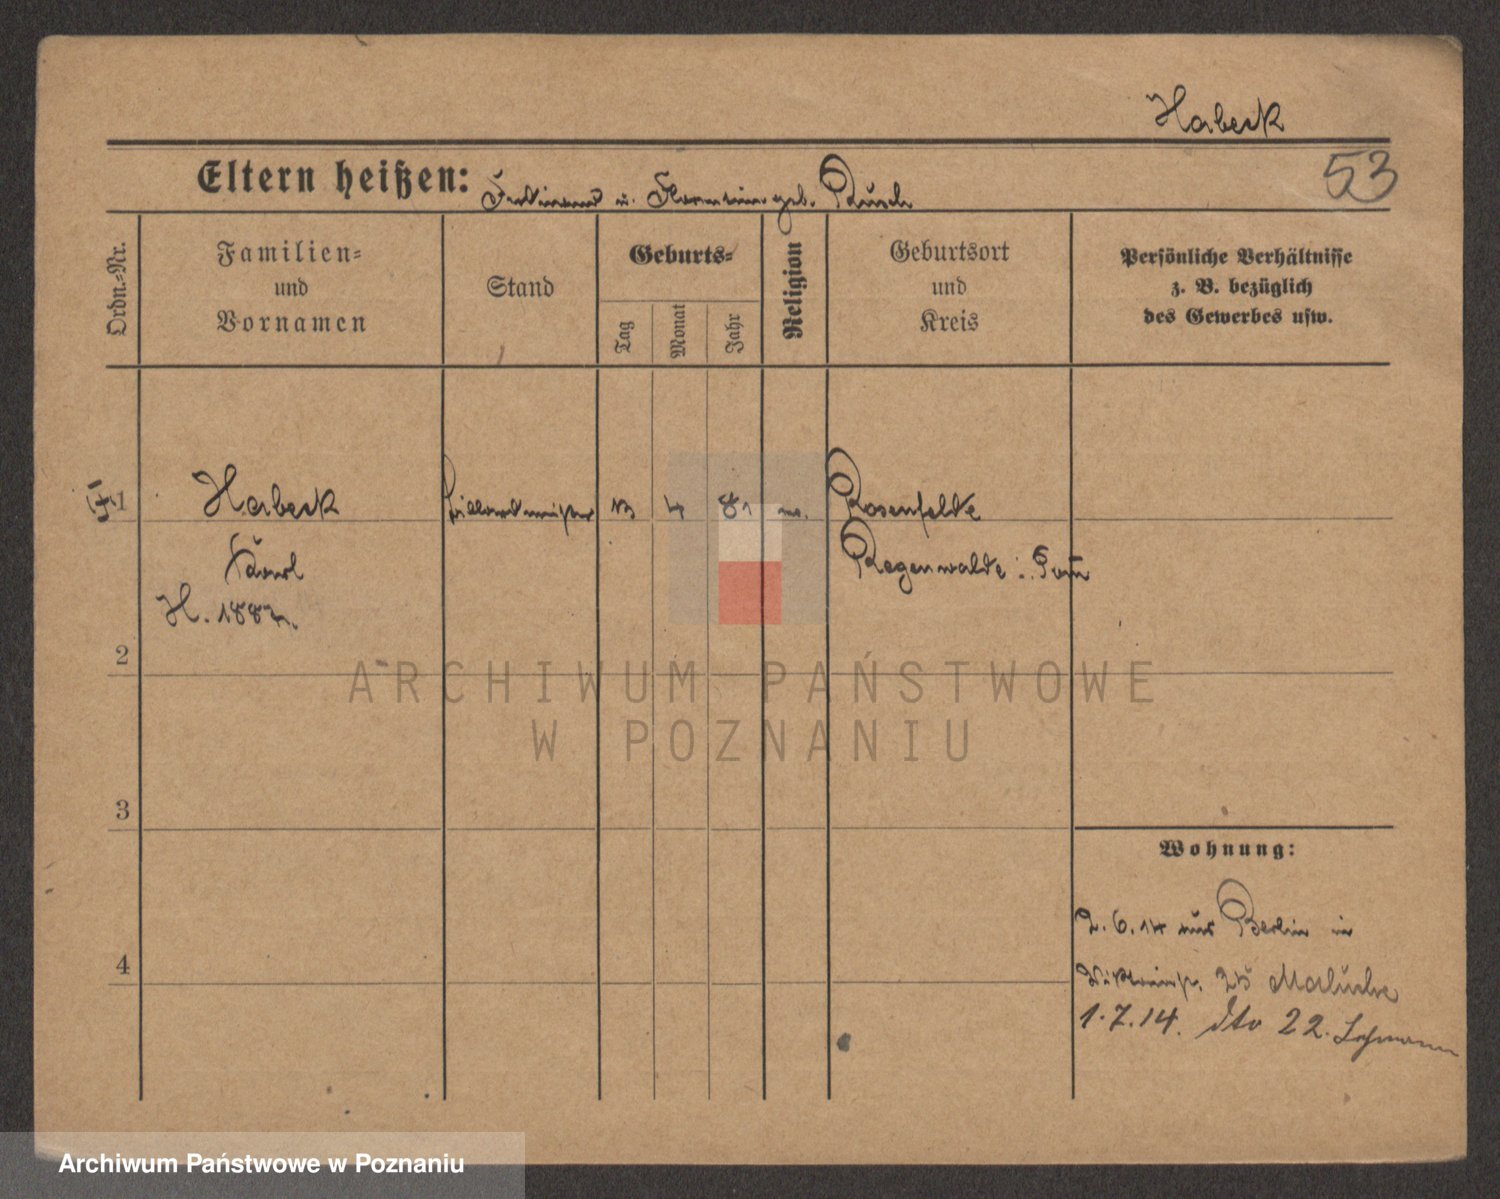 Habeck
53
Eltern heißen: Ferdinand u. geb. Rusch
Ordn.-Nr.
Familien-
und
Vornamen
Stand
Geburts-
Tag
Monat
Jahr
Religion
Geburtsort
und
Kreis
Persönliche Verhältnisse
z. B. bezüglich
des Gewerbes usw.
1
Habeck
Billardmeister
13
4
81
ev.
Rosenfelde
Karl
Regenwalde i. Pom
H. 1887.
2
ARCHIWUM PAŃSTWOWE
W POZNANIU
3
Wohnung:
2.6.14 aus Berlin in
4
25 Maluche
1.7.14. dto 22. Lehmann
Archiwum Państwowe w Poznaniu